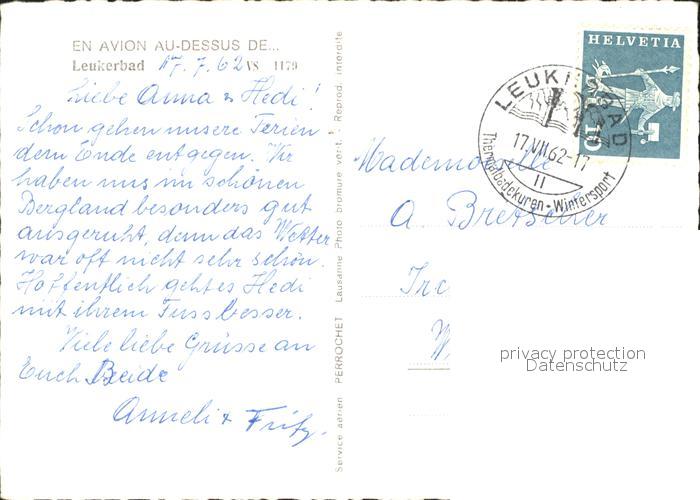 EN AVION AU-DESSUS DE...
Leukerbad 17.7.62 VS 1179
Liebe Anna & Hedi!
Schon gehen unsere Ferien
dem Ende entgegen. Wir
haben uns im schönen
Bergland besonders gut
ausgeruht, denn das Wetter
war oft nicht sehr schön.
Hoffentlich geht es Hedi
mit ihrem Fuss besser.
Viele liebe Grüsse an
Euch Beide
Anneli & Fritz.
Service aérien PERROCHET Lausanne Photo bromure vérit. - Reprod. interdite
HELVETIA
10
LEUKERBAD
17.VII.62-17
II
Thermalbadekuren - Wintersport
Mademoiselle
A. Bretscher
privacy protection
Datenschutz